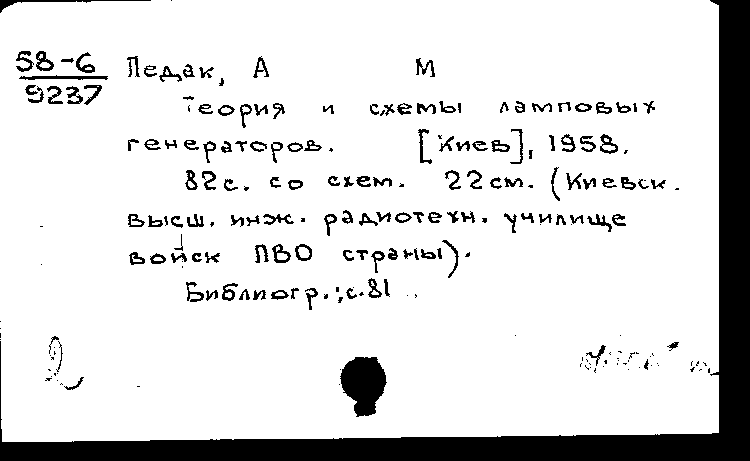 58-6 Педак, А М
9237
Теория и схемы ламповых
генераторов. [Киев], 1958.
82с. со схем. 22см. (Киевск.
высш. инж. радиотехн. училище
войск ПВО страны).
Библиогр.: с.81
2